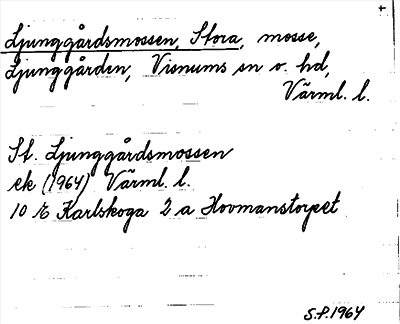 +
Ljunggårdsmossen, Stora, mosse,
Ljunggården, Visnums sn o. hd,
Värml. l.
St. Ljunggårdsmossen
ek (1964) Värml. l.
10 E Karlskoga 2 a Hovmanstorpet
S.P. 1964